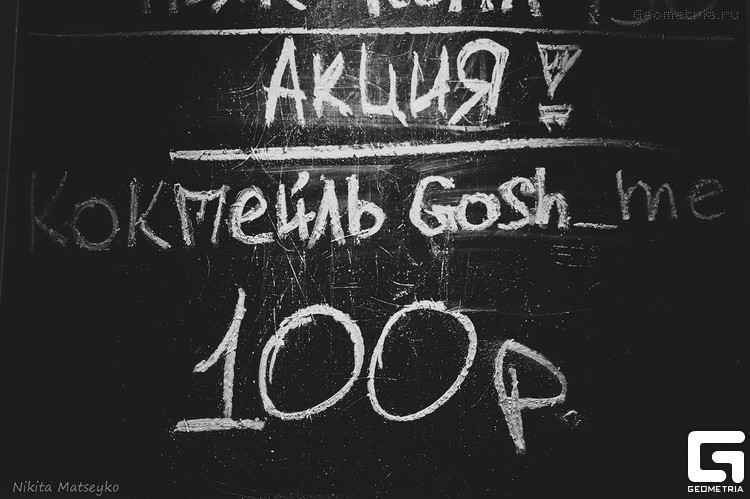 Geometria.ru
АКЦИЯ!
Коктейль Gosh_me
100 р.
Nikita Matseyko
GEOMETRIA